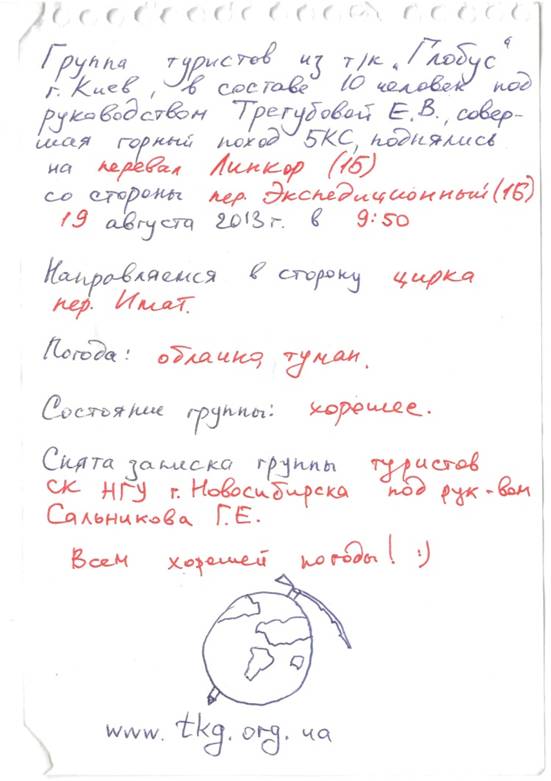 Группа туристов из т/к „Глобус“
г. Киев, в составе 10 человек под
руководством Трегубовой Е.В., совер-
шая горный поход 5КС, поднялись
на перевал Линкор (1Б)
со стороны пер. Экспедиционный (1Б)
19 августа 2013г. в 9:50
Направляемся в сторону цирка
пер. Имат.
Погода: облачно, туман.
Состояние группы: хорошее.
Снята записка группы туристов
СК НГУ г. Новосибирска под рук-вом
Сальникова Г.Е.
Всем хорошей погоды! :)
www.tkg.org.ua